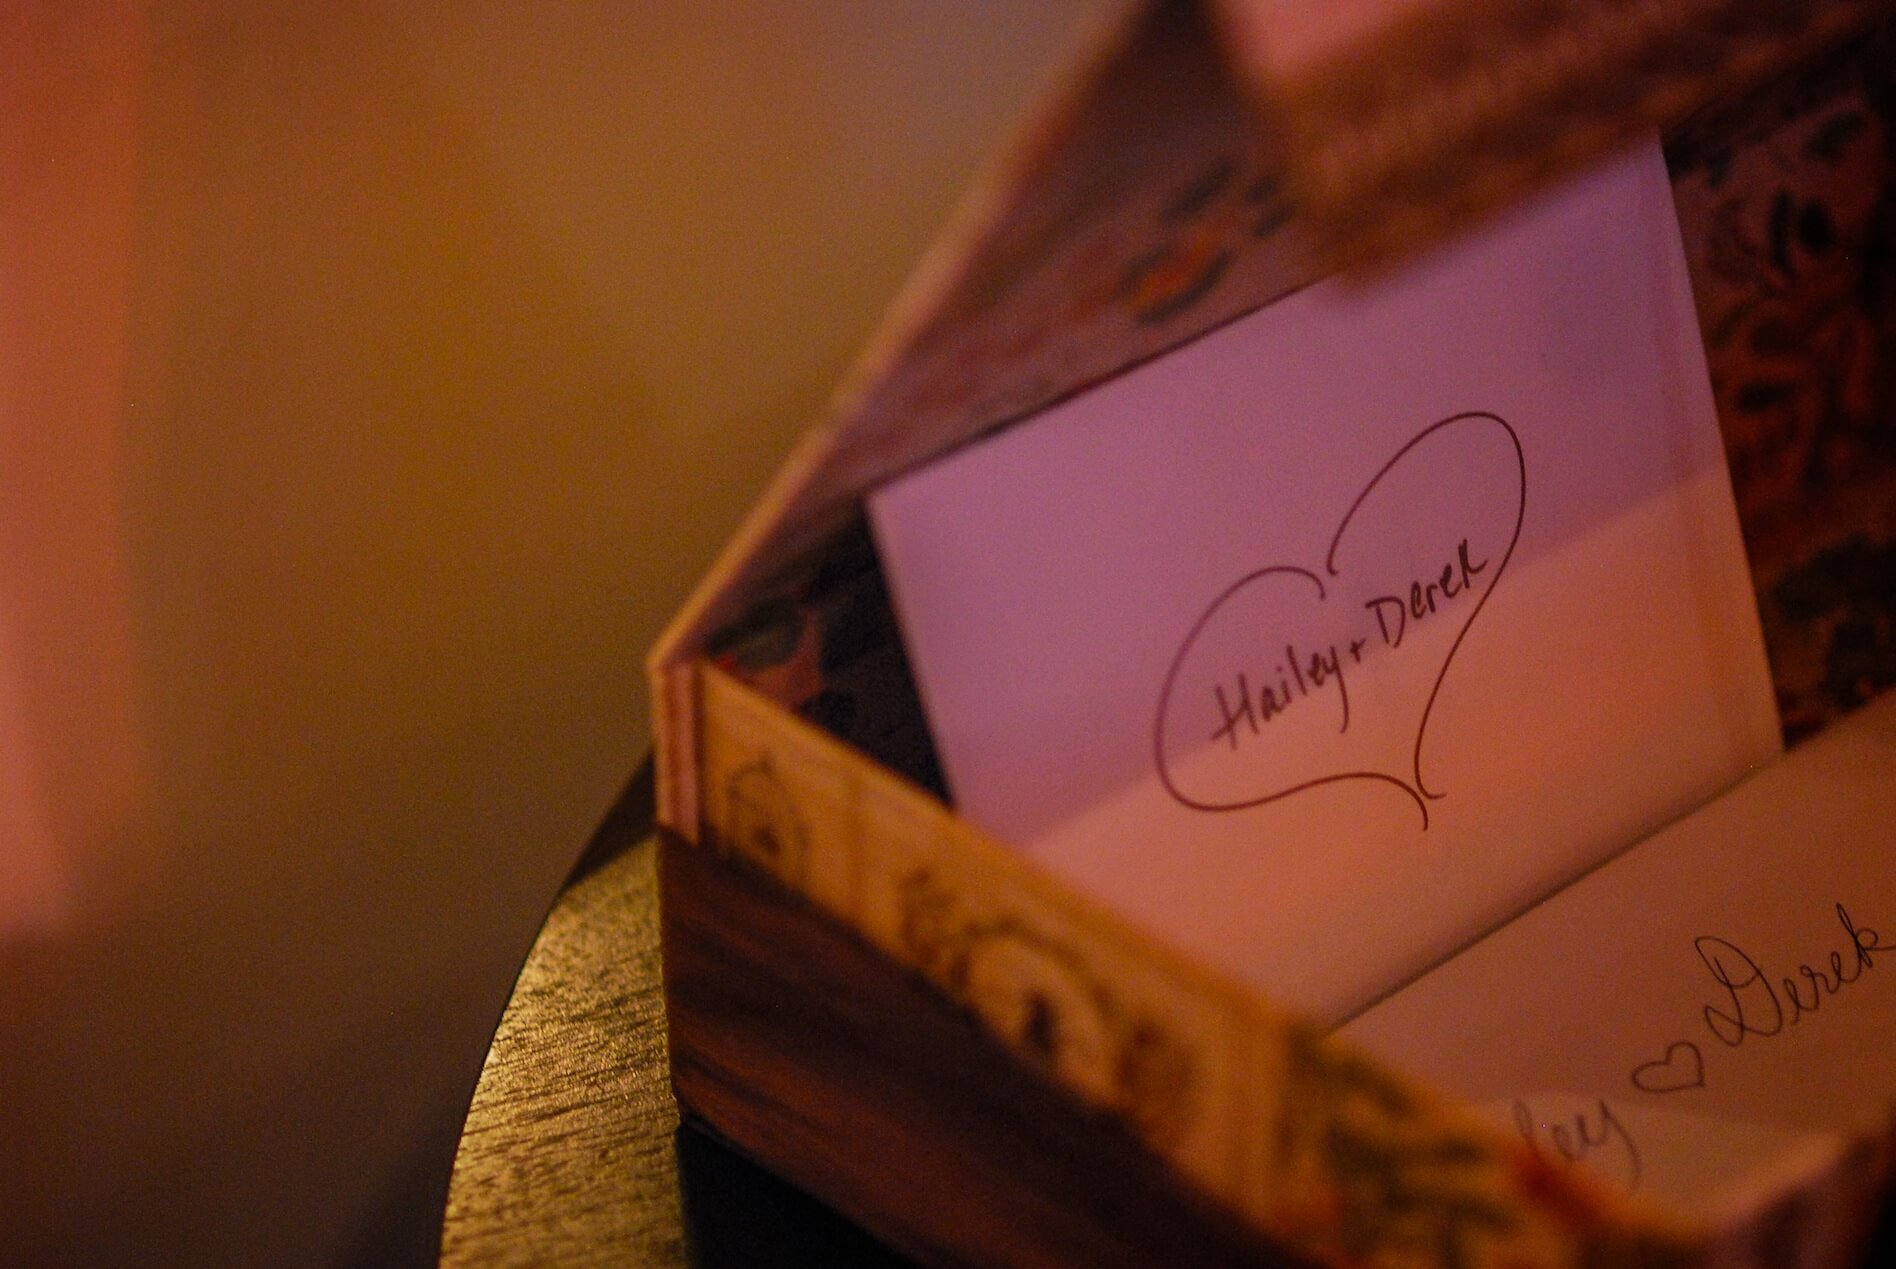 Hailey + Derek
ley ♡ Derek